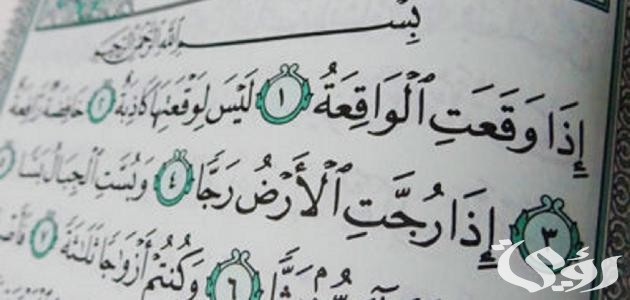 بِسْمِ ٱللَّهِ ٱلرَّحْمَٰنِ ٱلرَّحِيمِ
إِذَا وَقَعَتِ ٱلْوَاقِعَةُ ١ لَيْسَ لِوَقْعَتِهَا كَاذِبَةٌ ٢ خَافِضَةٌ رَّافِعَةٌ
٣ إِذَا رُجَّتِ ٱلْأَرْضُ رَجًّا ٤ وَبُسَّتِ ٱلْجِبَالُ بَسًّا
٦ وَكُنتُمْ أَزْوَٰجًا ثَلَٰثَةً ٧
رؤى